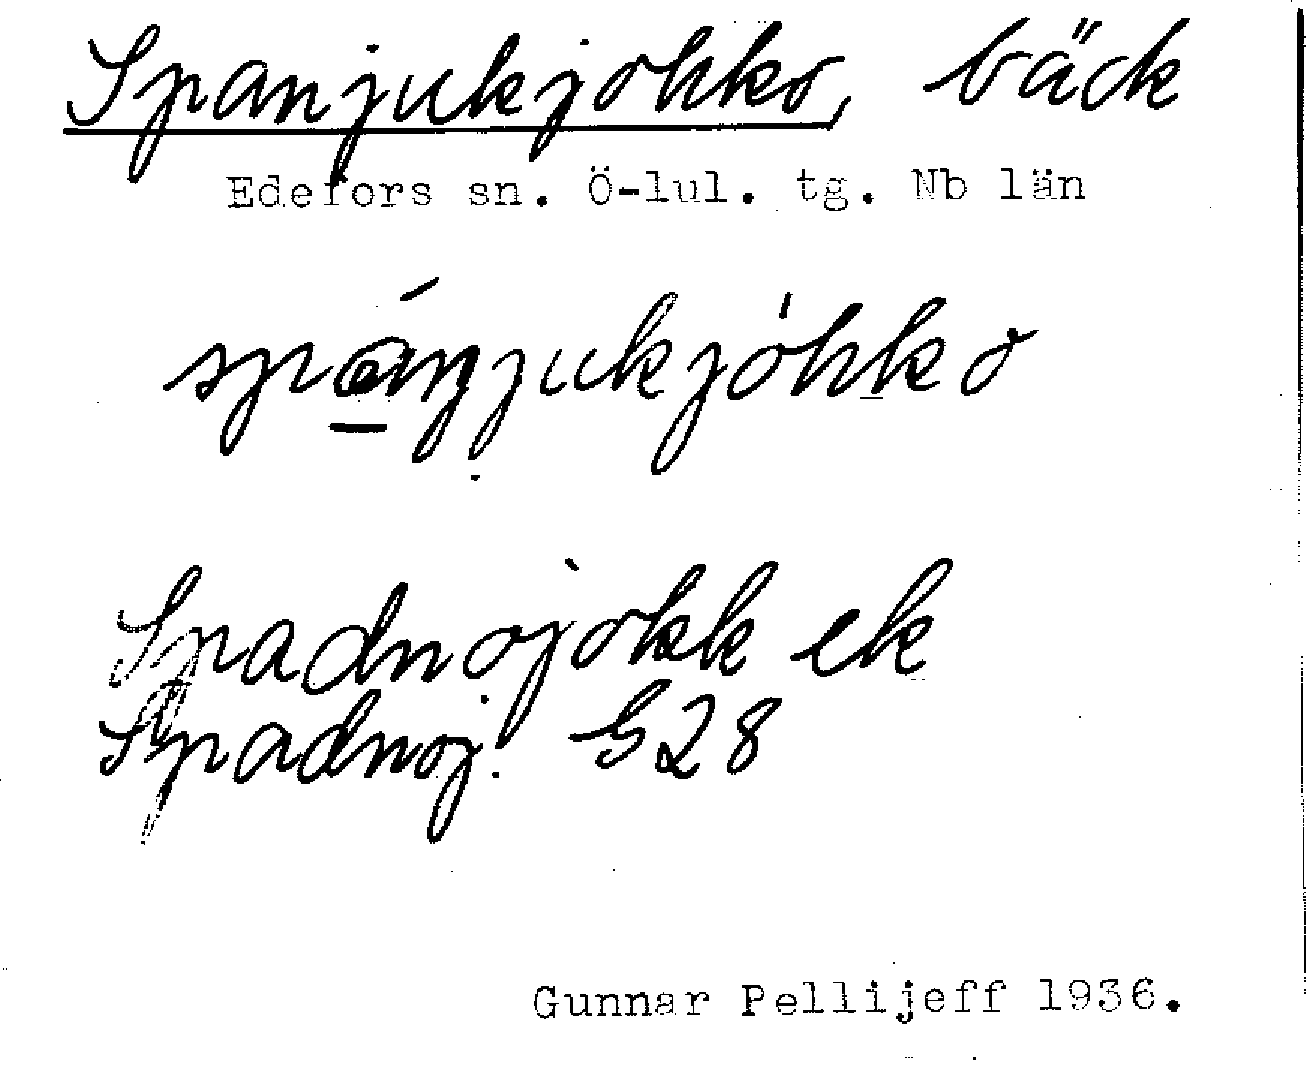 Spanjukjohko, bäck
Edefors sn. Ö-lul. tg. Nb län
Spadnojokk ek
Spadnoj. G28
Gunnar Pellijeff 1936.